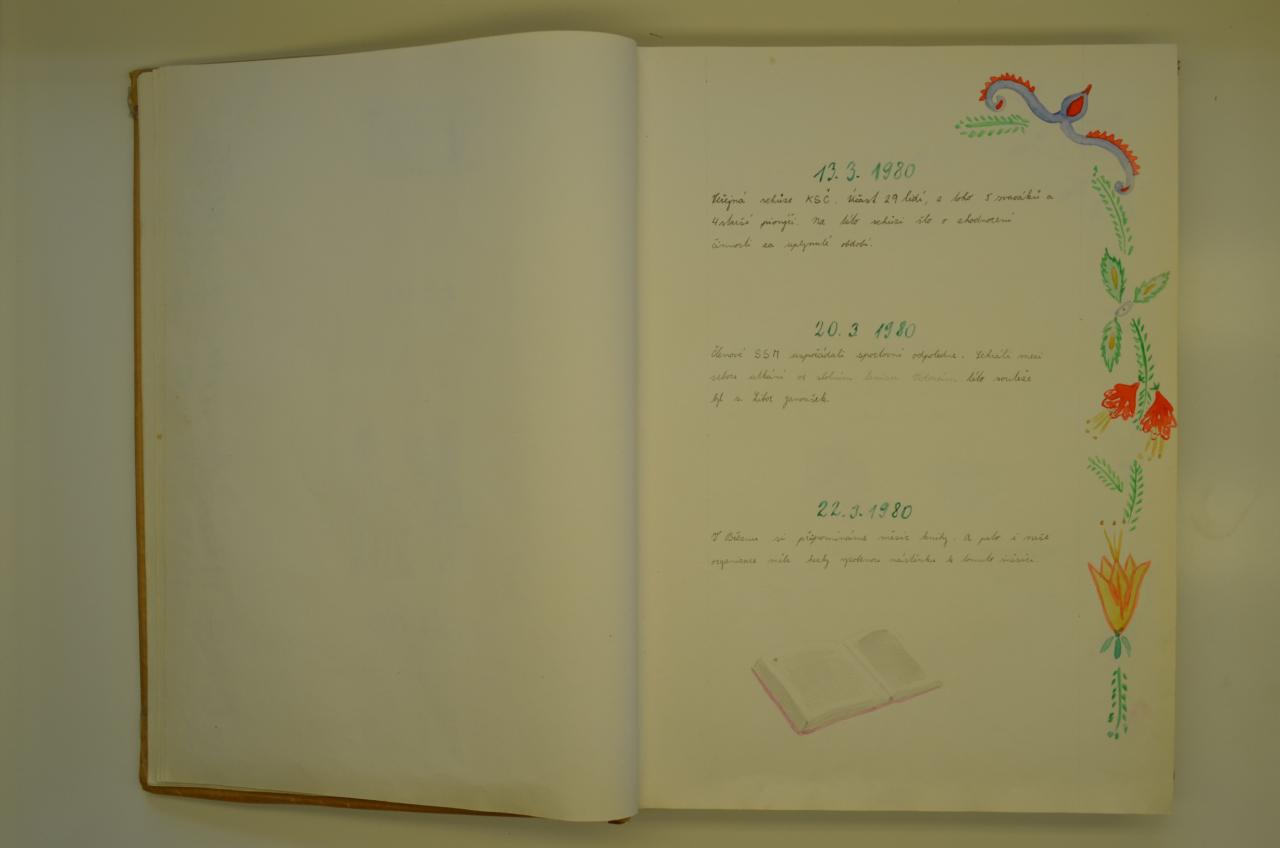 13. 3. 1980
Veřejná schůze KSČ. Účast 29 lidí, z toho 5 svazáků a
4 starší pionýři. Na této schůzi šlo o zhodnocení
činnosti za uplynulé období.
20. 3 1980
Členové SSM uspořádali sportovní odpoledne. Sehráli mezi
sebou utkání ve stolním tenisu. této soutěže
byl s. Libor Janoušek.
22. 3. 1980
V Březnu si připomínáme měsíc knihy. A proto i naše
organizace měla hezky nástěnku k tomuto měsíci.